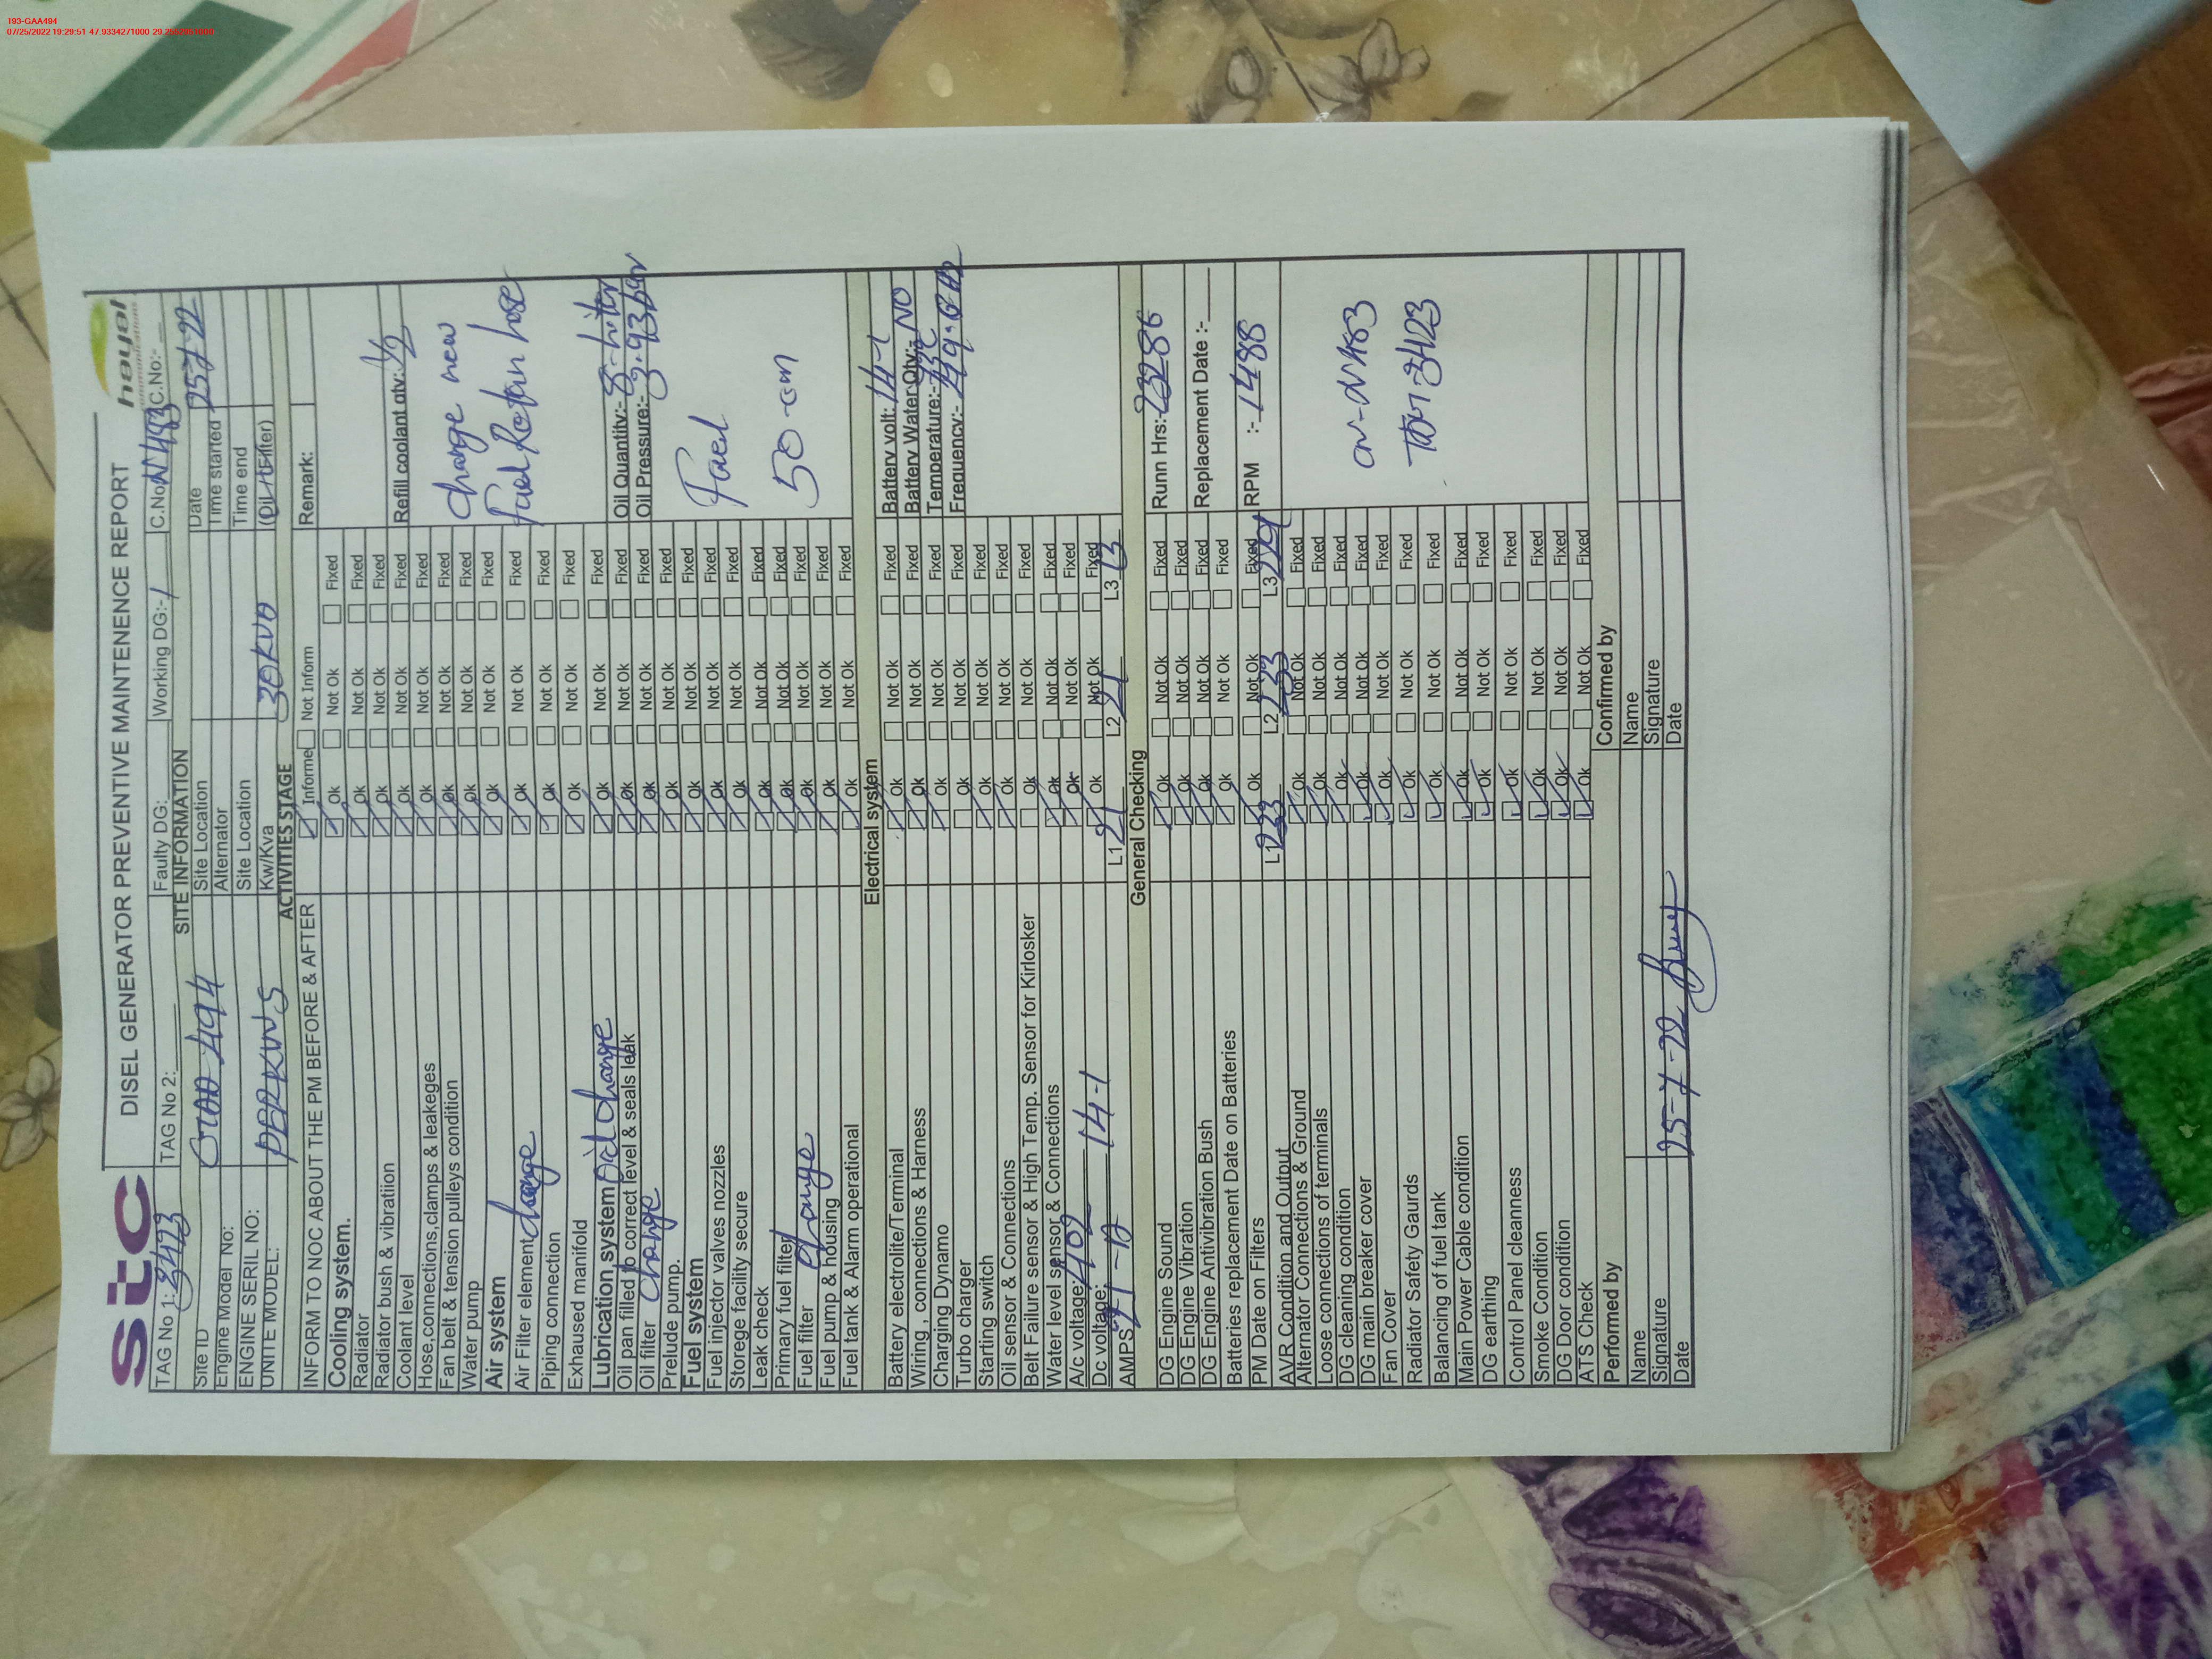 193-GAA494
07/25/2022 19:29:51 47.9334271000
stc
DISEL GENERATOR PREVENTIVE MAINTENENCE REPORT
hayat
TAG No 1: 3423 TAG No 2: Faulty DG: Working DG:-1 C.No N1483 C.No:-
SITE INFORMATION
Site ID GAA 494 Site Location Date 25 7 22
Engine Model No: Alternator Time started
ENGINE SERIL NO: Site Location Time end
UNITE MODEL: PERKINS Kw/Kva 30KVA (Oil liter)
ACTIVITIES STAGE
INFORM TO NOC ABOUT THE PM BEFORE & AFTER Informe Not Inform Remark:
Cooling system. Ok Not Ok Fixed
Radiator Ok Not Ok Fixed
Radiator bush & vibratiion Ok Not Ok Fixed
Coolant level Ok Not Ok Fixed Refill coolant qty: 1/2
Hose,connections,clamps & leakeges Ok Not Ok Fixed
Fan belt & tension pulleys condition Ok Not Ok Fixed change new
Water pump Ok Not Ok Fixed
Air system Ok Not Ok Fixed hose
Air Filter element change Ok Not Ok Fixed
Piping connection Ok Not Ok Fixed
Exhaused manifold Ok Not Ok Fixed
Lubrication system Oil change Ok Not Ok Fixed
Oil pan filled to correct level & seals leak Ok Not Ok Fixed Oil Quantity:- 8-liter
Oil filter change Ok Not Ok Fixed Oil Pressure:- 3.93bar
Prelude pump. Ok Not Ok Fixed
Fuel system Ok Not Ok Fixed
Fuel injector valves nozzles Ok Not Ok Fixed Fuel
Storege facility secure Ok Not Ok Fixed
Leak check Ok Not Ok Fixed
Primary fuel filter Ok Not Ok Fixed 50-cm
Fuel filter change Ok Not Ok Fixed
Fuel pump & housing Ok Not Ok Fixed
Fuel tank & Alarm operational Ok Not Ok Fixed
Electrical system
Battery electrolite/Terminal Ok Not Ok Fixed Battery volt: 14-1
Wiring , connections & Harness Ok Not Ok Fixed Battery Water Qty:- NO
Charging Dynamo Ok Not Ok Fixed Temperature:-
Turbo charger Ok Not Ok Fixed Frequency:-
Starting switch Ok Not Ok Fixed
Oil sensor & Connections Ok Not Ok Fixed
Belt Failure sensor & High Temp. Sensor for Kirlosker Ok Not Ok Fixed
Water level sensor & Connections Ok Not Ok Fixed
A/c voltage: 402 Ok Not Ok Fixed
Dc voltage: 14-1 Ok Not Ok Fixed
AMPS 21-A L1 21 L2 21 L3 13
General Checking
DG Engine Sound Ok Not Ok Fixed Runn Hrs: 23286
DG Engine Vibration Ok Not Ok Fixed
DG Engine Antivibration Bush Ok Not Ok Fixed Replacement Date :-
Batteries replacement Date on Batteries Ok Not Ok Fixed
PM Date on Filters Ok Not Ok Fixed RPM :- 1488
AVR Condition and Output L1 233 L2 233 L3
Alternator Connections & Ground Ok Not Ok Fixed
Loose connections of terminals Ok Not Ok Fixed
DG cleaning condition Ok Not Ok Fixed
DG main breaker cover Ok Not Ok Fixed cn-N1483
Fan Cover Ok Not Ok Fixed
Radiator Safety Gaurds Ok Not Ok Fixed 3423
Balancing of fuel tank Ok Not Ok Fixed
Main Power Cable condition Ok Not Ok Fixed
DG earthing Ok Not Ok Fixed
Control Panel cleanness Ok Not Ok Fixed
Smoke Condition Ok Not Ok Fixed
DG Door condition Ok Not Ok Fixed
ATS Check Ok Not Ok Fixed
Performed by Confirmed by
Name Name
Signature Signature
Date 25-7-22 Date